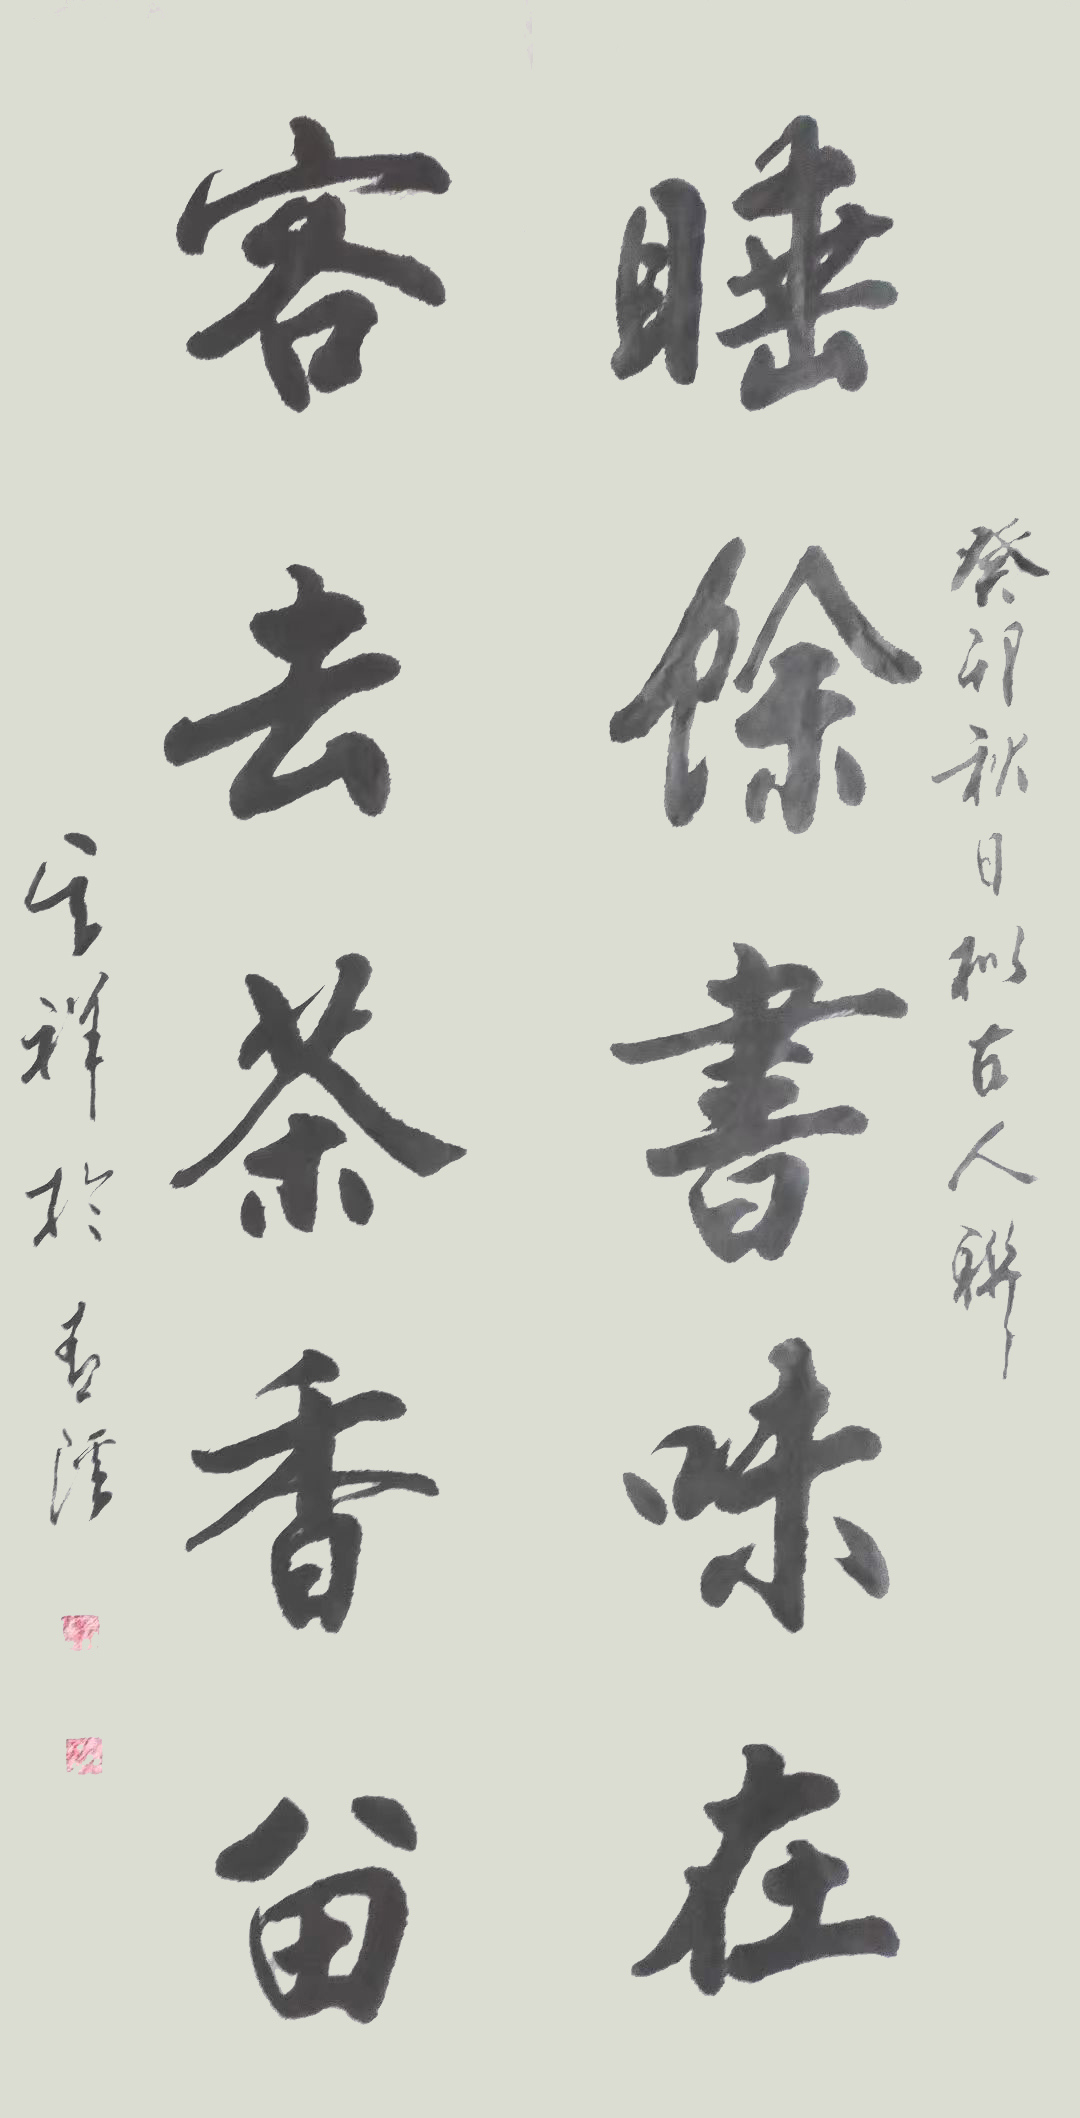 癸卯秋日擬古人聯
睡餘書味在
客去茶香留
祥於